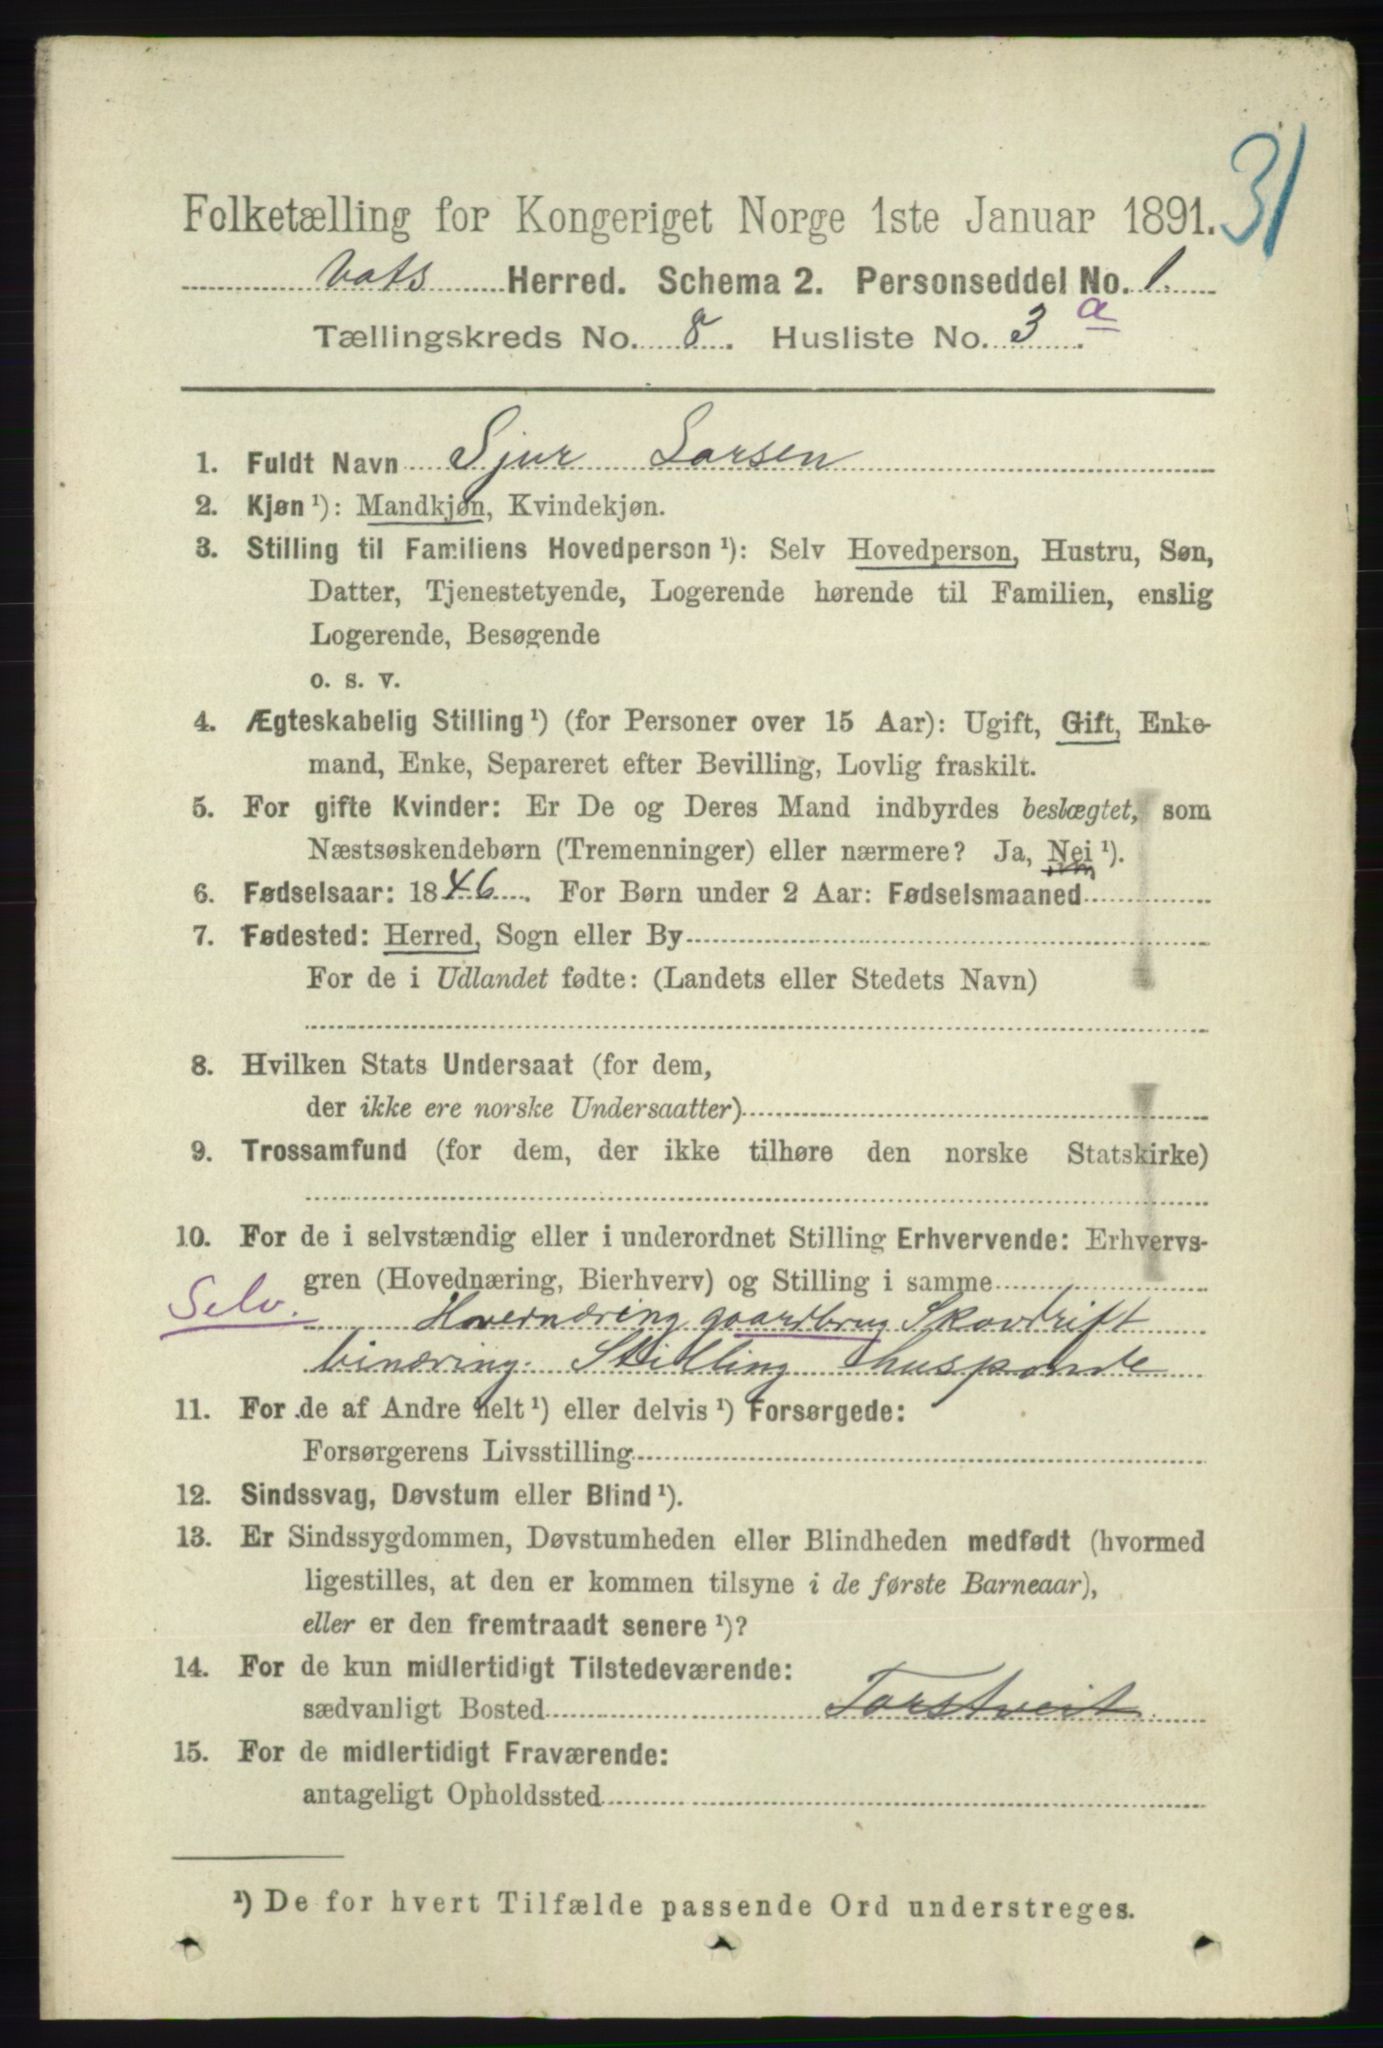 31
Folketælling for Kongeriget Norge 1ste Januar 1891.
Vats Herred. Schema 2. Personseddel No. 1.
Tællingskreds No. 8. Husliste No. 3 a.
1. Fuldt Navn Sjur Larsen
2. Kjøn ¹): Mandkjøn, Kvindekjøn.
3. Stilling til Familiens Hovedperson ¹): Selv Hovedperson, Hustru, Søn,
Datter, Tjenestetyende, Logerende hørende til Familien, enslig
Logerende, Besøgende
o. s. v.
4. Ægteskabelig Stilling ¹) (for Personer over 15 Aar): Ugift, Gift, Enke-
mand, Enke, Separeret efter Bevilling, Lovlig fraskilt.
5. For gifte Kvinder: Er De og Deres Mand indbyrdes beslægtet, som
Næstsøskendebørn (Tremenninger) eller nærmere? Ja, Nei ¹).
6. Fødselsaar: 1846. For Børn under 2 Aar: Fødselsmaaned
7. Fødested: Herred, Sogn eller By
For de i Udlandet fødte: (Landets eller Stedets Navn)
8. Hvilken Stats Undersaat (for dem,
der ikke ere norske Undersaatter)
9. Trossamfund (for dem, der ikke tilhøre den norske Statskirke)
10. For de i selvstændig eller i underordnet Stilling Erhvervende: Erhvervs-
gren (Hovednæring, Bierhverv) og Stilling i samme
Selv. Hovernæring gaardbrug Skovdrift
binæring. Stilling husponde
11. For de af Andre helt ¹) eller delvis ¹) Forsørgede:
Forsørgerens Livsstilling
12. Sindssvag, Døvstum eller Blind ¹).
13. Er Sindssygdommen, Døvstumheden eller Blindheden medfødt (hvormed
ligestilles, at den er kommen tilsyne i de første Barneaar),
eller er den fremtraadt senere ¹)?
14. For de kun midlertidigt Tilstedeværende:
sædvanligt Bosted Tarstveit.
15. For de midlertidigt Fraværende:
antageligt Opholdssted
¹) De for hvert Tilfælde passende Ord understreges.